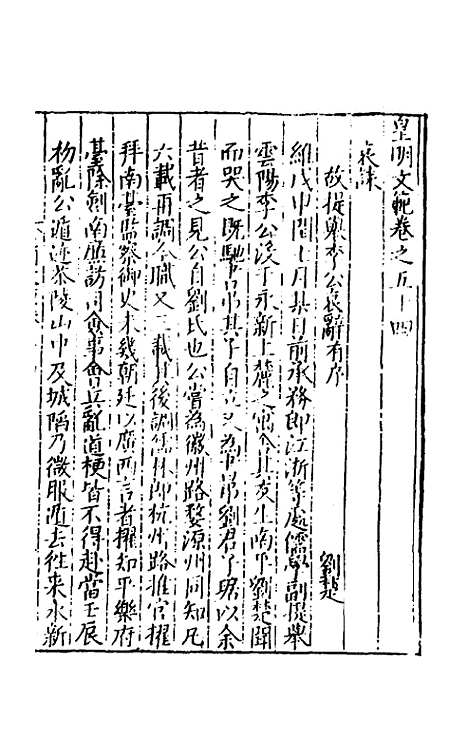 皇明文範卷之五十四
哀誄
故提舉李公哀辭有序
劉楚
維戊申閏七月某日前承務郎江浙等處儒學副提舉
雲陽李公沒于永新上麓之寓舍其友生南平劉楚聞
而哭之既馳書吊其子自立又為書吊劉君子琚以余
昔者之見公自劉氏也公嘗為徽州路婺源州同知凡
六載再調今職又二載其後調儒林郎杭州路推官擢
拜南臺監察御史未幾朝廷以廣西言者擢知平樂府
臺除劄南廉訪司僉事會兵亂道梗皆不得赴當壬辰
初亂公遁迹茶陵山中及城陷乃微服遁去往來永新